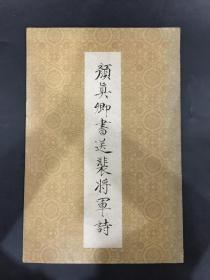 顏真卿書送裴将軍詩